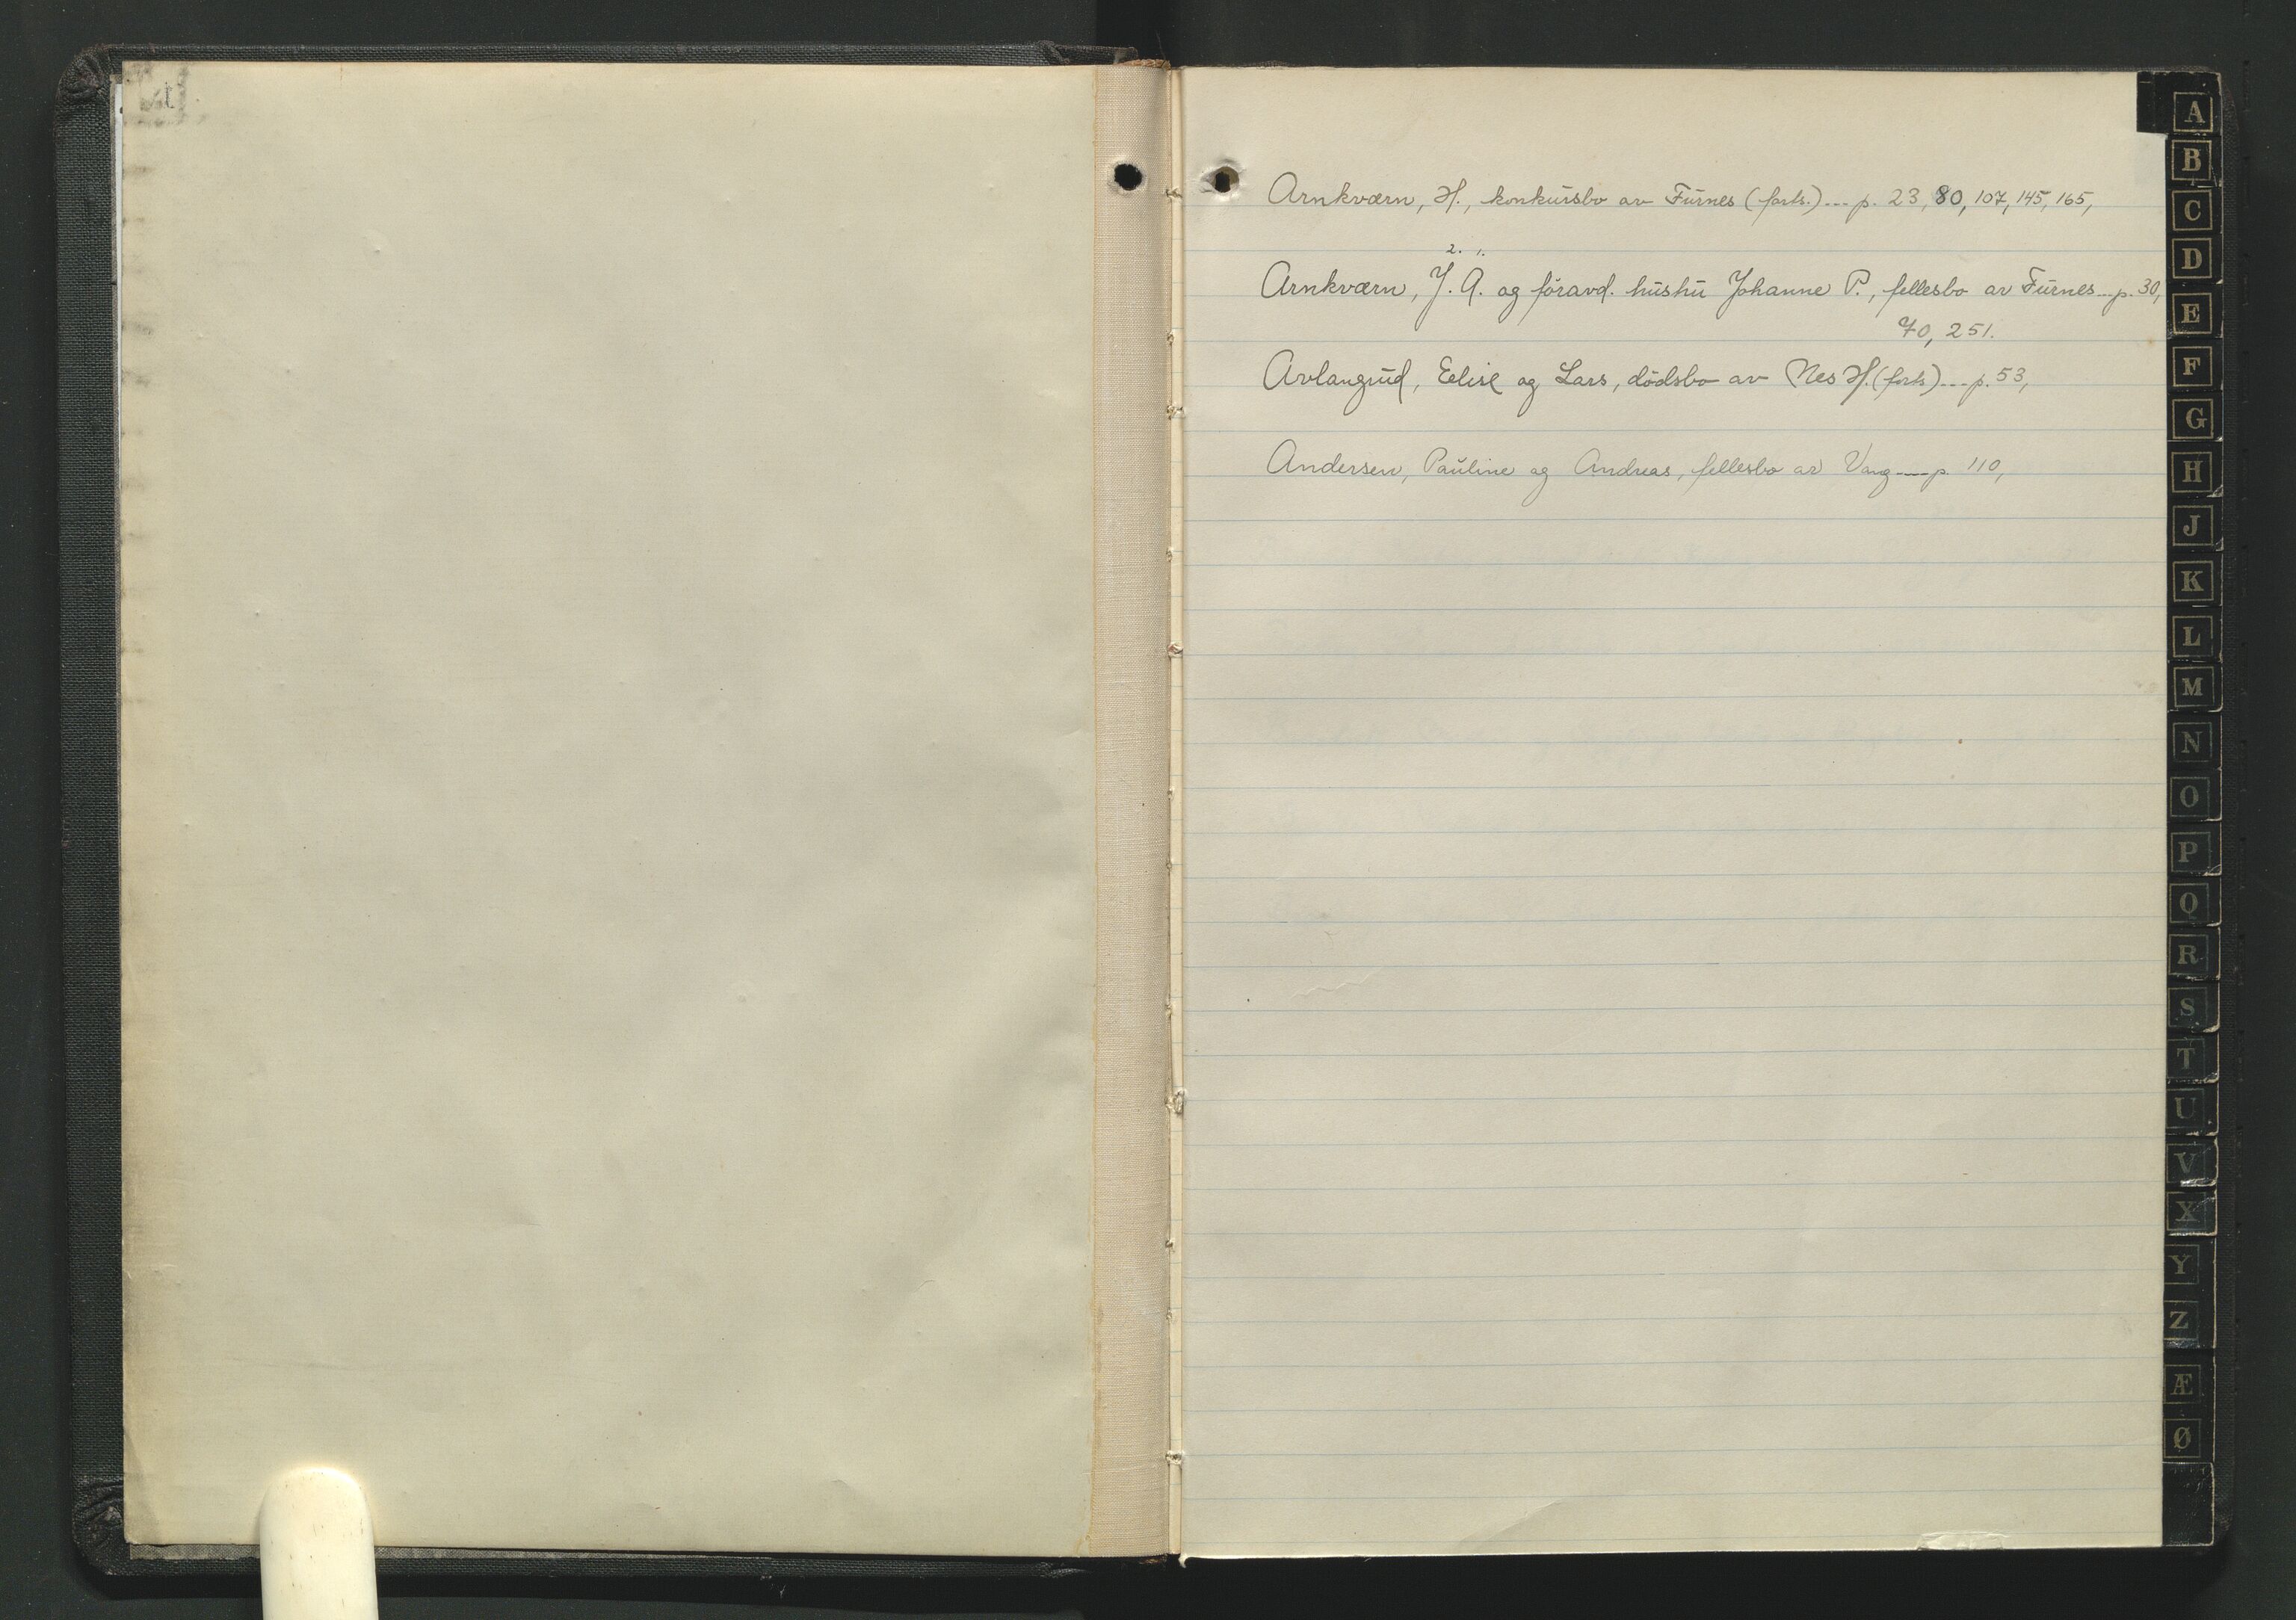 Arnkværn, H., konkursbo av Furnes (forts.)---p. 23, 80, 107, 145, 165,
2. 1.
Arnkværn, J. A. og foravd. hushu Johanne P., fellesbo av Furnes---p. 30,
70, 251.
Avlangrud, Eelise og Lars, dödsbo av Nes H. (forts)---p. 53,
Andersen, Pauline og Andreas, fellesbo av Vang---p. 110,
A
B
C
D
E
F
G
H
J
K
L
M
N
O
P
Q
R
S
T
U
V
X
Y
Z
Æ
Ø